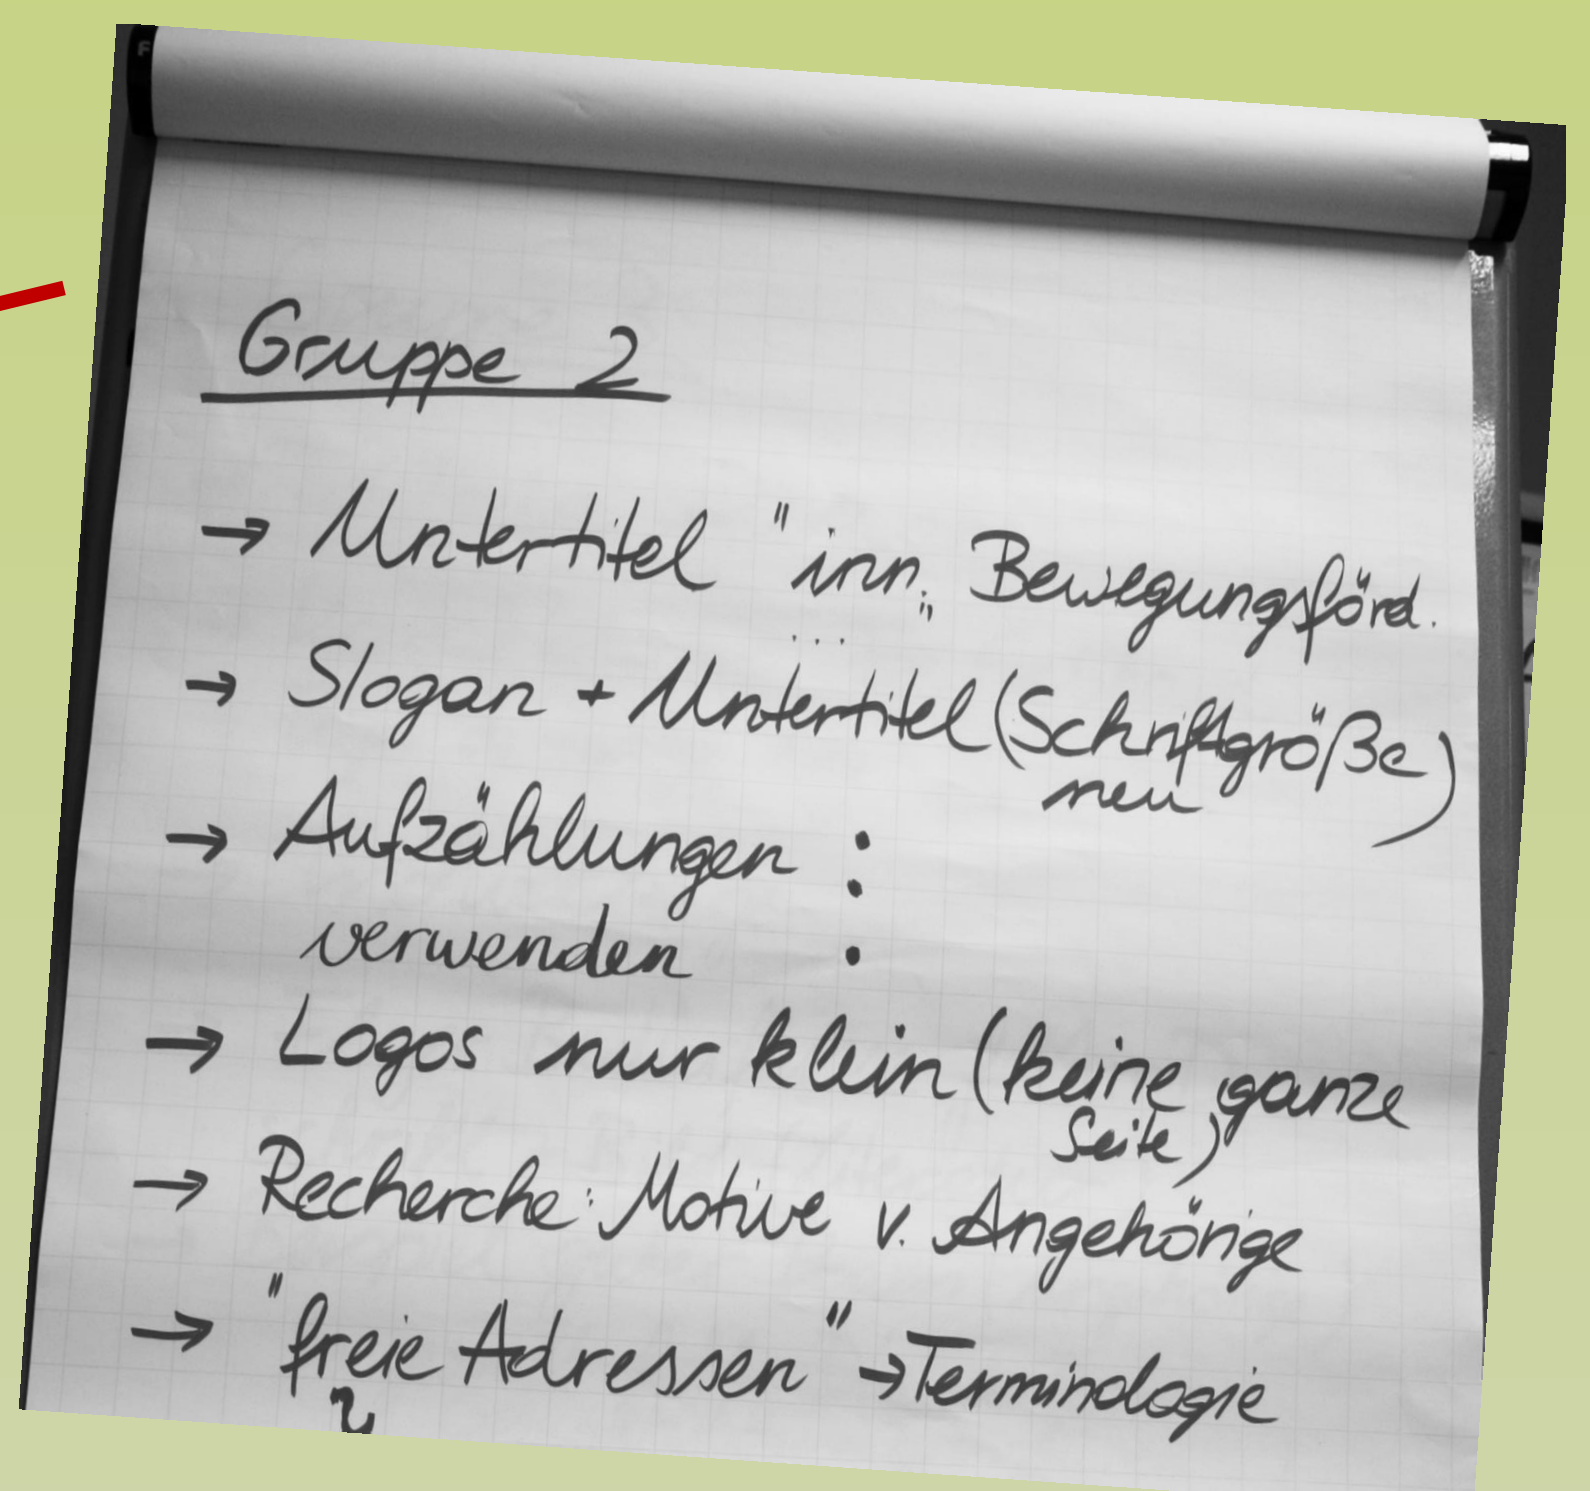 Gruppe 2
→ Untertitel "inn." Bewegungsförd.
...
→ Slogan + Untertitel (Schriftgröße
neu)
→ Aufzählungen :
verwenden •
→ Logos nur klein (keine ganze
Seite)
→ Recherche: Motive v. Angehörige
→ "freie Adressen" → Terminologie